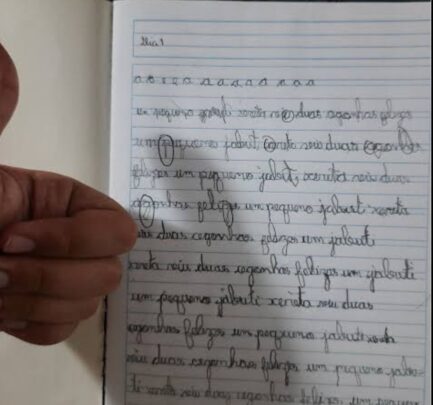 Dia 1
a a a a a a a a a a a a
um pequeno jabuti xereta viu duas cegonhas felizes
um pequeno jabuti xereta viu duas cegonhas
felizes um pequeno jabuti xereta viu duas
cegonhas felizes um pequeno jabuti xereta
viu duas cegonhas felizes um jabuti
xereta viu duas cegonhas felizes um jabuti
um pequeno jabuti xereta viu duas
cegonhas felizes um pequeno jabuti xereta
viu duas cegonhas felizes um pequeno jabu-
ti xereta viu duas cegonhas felizes um pequeno